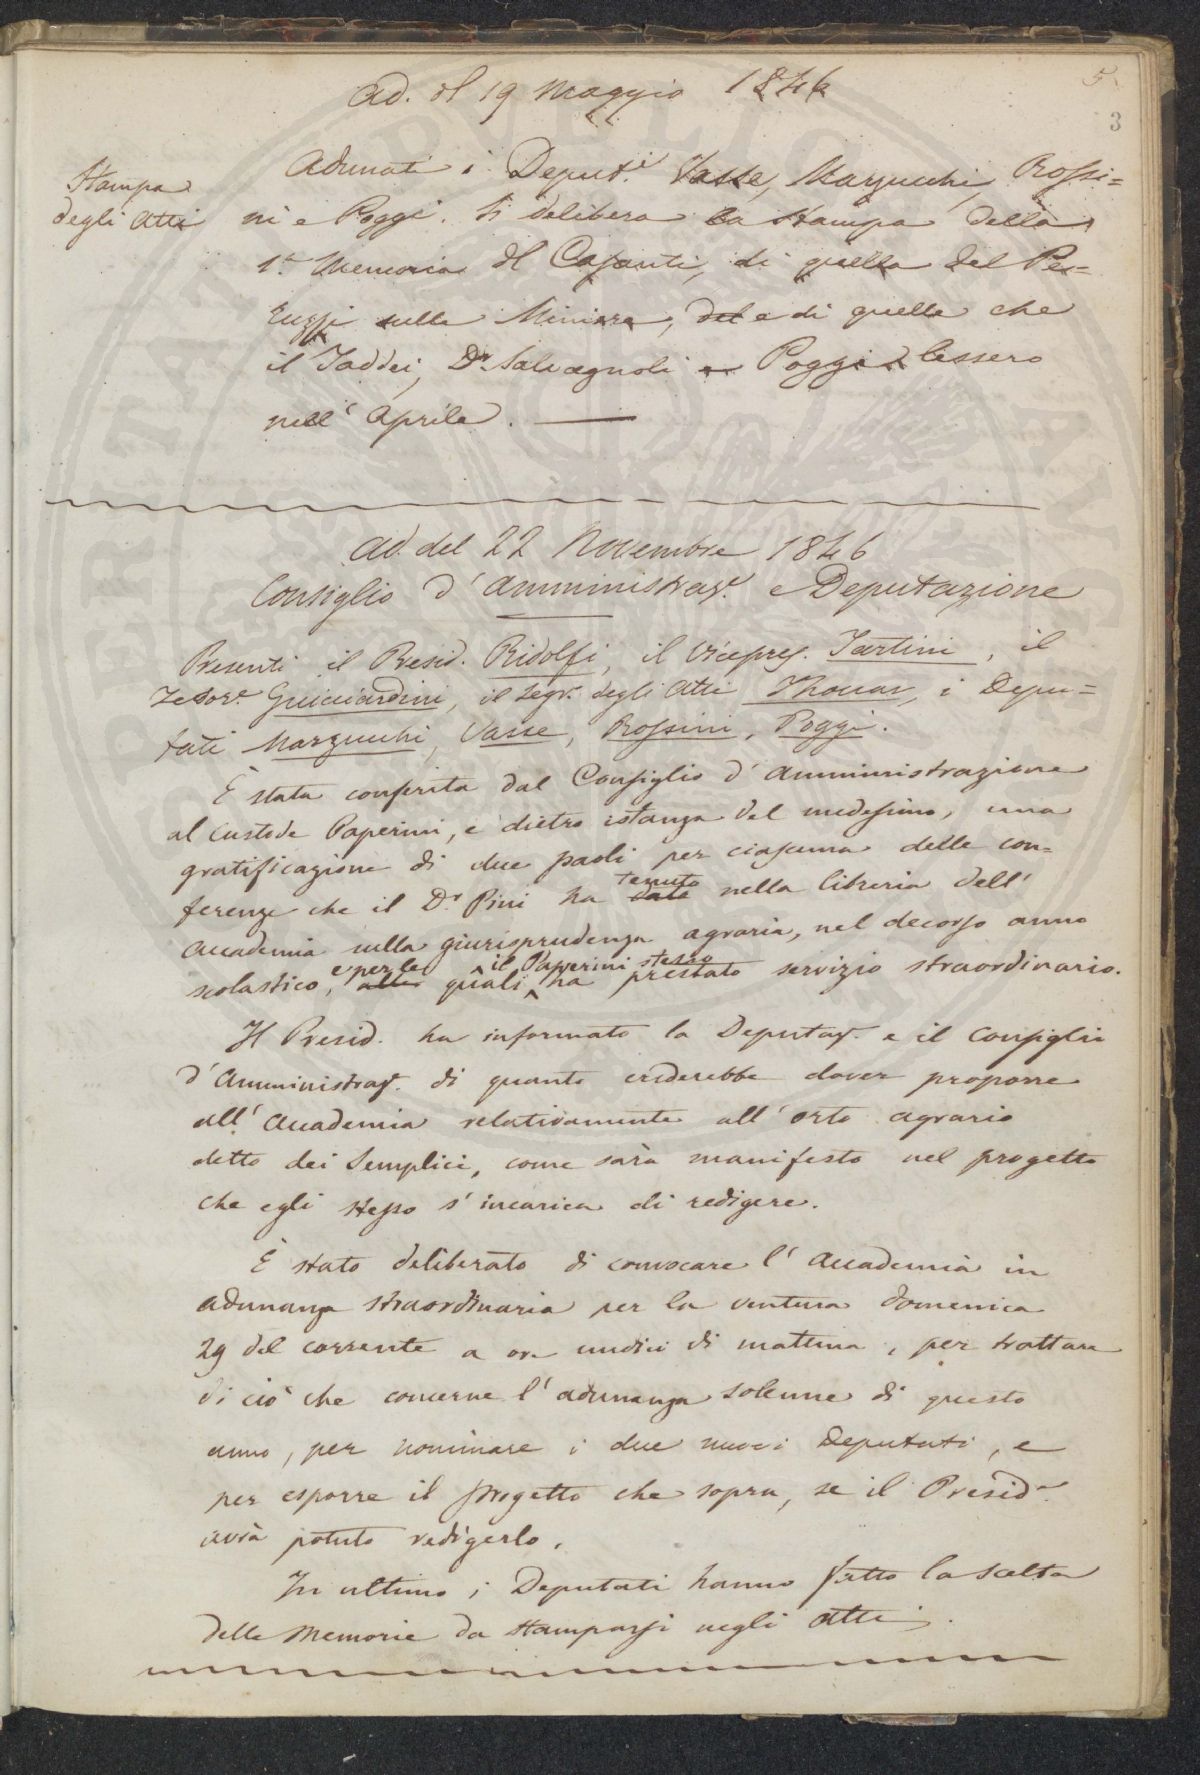 5
3
Ad. del 19 Maggio 1846
Stampa
degli Atti
Adunati i Deput.i Vasse, Marzucchi, Rossi=
ni e Poggi. Si delibera la stampa della
1.a Memoria del Casanti, di quella del Pe=
ruzzi sulle Miniere, del e di quelle che
il Taddei, Dr. Salvagnoli e Poggi lessero
nell' Aprile.
Ad. del 22 Novembre 1846
Consiglio d' Amministraz.e e Deputazione
Presenti il Presid. Ridolfi, il Vicepres. Tartini, il
Tesor.e Guicciardini, il Segr. degli Atti Thouar, i Depu=
tati Marzucchi, Vasse, Rossini, Poggi.
È stata conferita dal Consiglio d' Amministrazione
al custode Paperini, e dietro istanza del medesimo, una
gratificazione di due paoli per ciascuna delle con=
ferenze che il Dr. Pini ha tenuto nella libreria dell'
Accademia sulla giurisprudenza agraria, nel decorso anno
scolastico, e per le quali il Paperini stesso ha prestato servizio straordinario.
Il Presid. ha informato la Deputaz. e il Consiglio
d' Amministraz. di quanto crederebbe dover proporre
all' Accademia relativamente all' orto agrario
detto dei Semplici, come sarà manifesto nel progetto
che egli stesso s' incarica di redigere.
È stato deliberato di convocare l' Accademia in
adunanza straordinaria per la ventura domenica
29 del corrente a ore undici di mattina, per trattare
di ciò che concerne l' adunanza solenne di questo
anno, per nominare i due nuovi Deputati, e
per esporre il progetto che sopra, se il Presid.e
avrà potuto redigerlo.
In ultimo i Deputati hanno fatto la scelta
delle Memorie da stamparsi negli Atti.